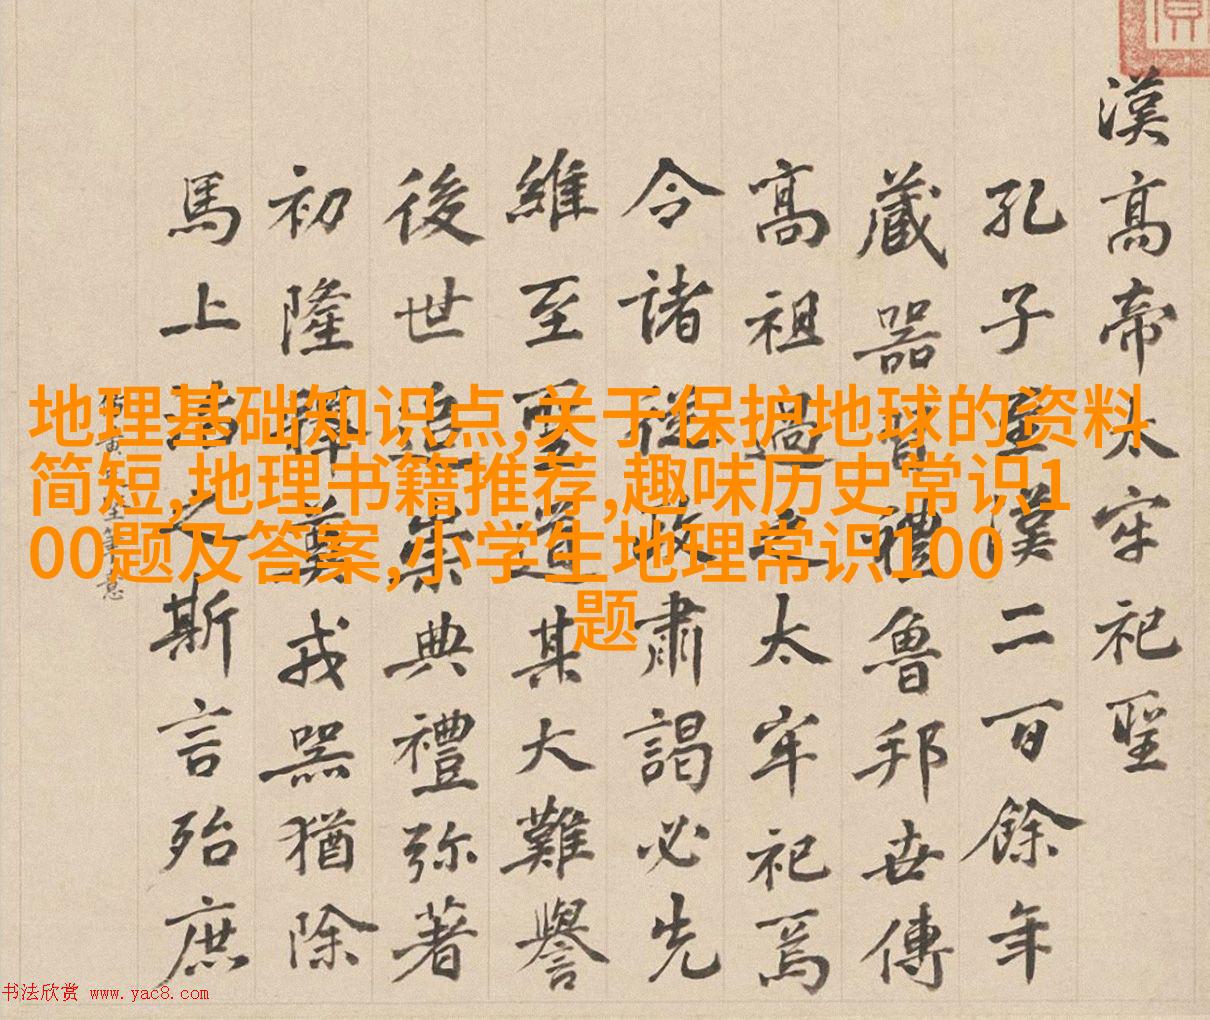 漢高帝太牢祀聖
孔子至漢二百餘年
藏器習禮魯邦世傳
高祖過之太牢祀焉
令諸從政肅謁必先
維至聖道其大難譽
後世追崇典禮弥著
初隆釋奠戎器猶除
馬上治之斯言殆庶
地理基础知识点,关于保护地球的资料
简短,地理书籍推荐,趣味历史常识1
00题及答案,小学生地理常识100
题
书法欣赏 www.yac8.com